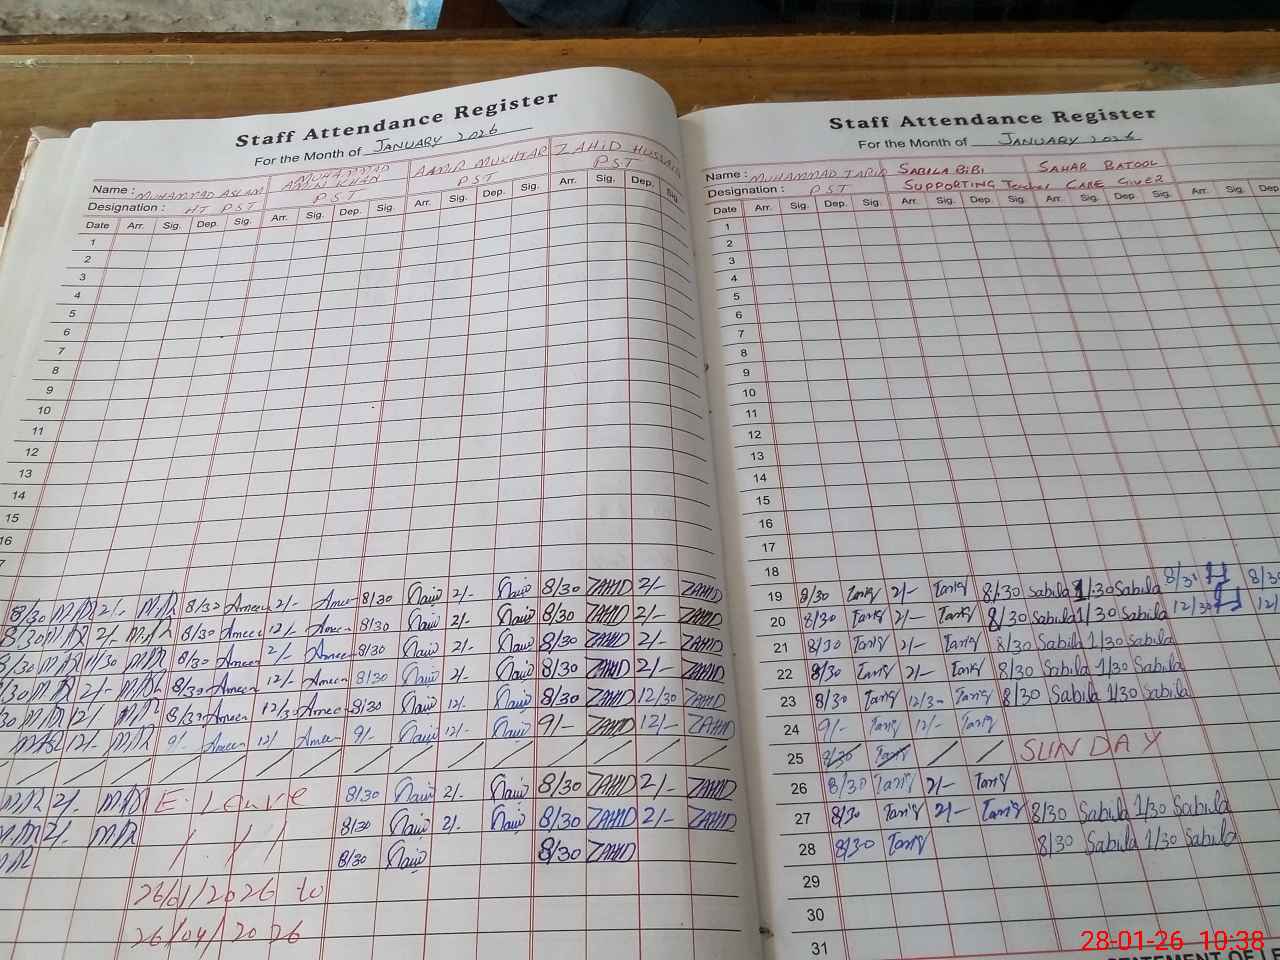 Staff Attendance Register
For the Month of JANUARY 2026
Name : MUHAMMAD ASLAM MUHAMMAD AMIN KHAN AAMIR MUKHTAR ZAHID HUSSAIN
Designation : HT PST PST PST PST
Date Arr. Sig. Dep. Sig. Arr. Sig. Dep. Sig. Arr. Sig. Dep. Sig. Arr. Sig. Dep. Sig.
1
2
3
4
5
6
7
8
9
10
11
12
13
14
15
16
8/30 MR 2/- MR 8/30 Ameen 2/- Ameen 8/30 2/- 8/30 ZAHID 2/- ZAHID
8/30 MR 2/- MR 8/30 Ameen 12/- Ameen 8/30 2/- 8/30 ZAHID 2/- ZAHID
8/30 MR 11/30 MR 8/30 Ameen 2/- Ameen 8/30 2/- 8/30 ZAHID 2/- ZAHID
/30 MR 2/- MR 8/30 Ameen 12/- Ameen 8/30 2/- 8/30 ZAHID 2/- ZAHID
30 MR 12/- MR 8/30 Ameen 12/30 Ameen 8/30 12/- 8/30 ZAHID 12/30 ZAHID
MR 12/- MR 9/- Ameen 12/ Ameen 9/- 12/- 9/- ZAHID 12/- ZAHID
MR 2/- MR E. Leave 8/30 2/- 8/30 ZAHID 2/- ZAHID
MR 2/- MR 8/30 2/- 8/30 ZAHID 2/- ZAHID
MR 8/30 8/30 ZAHID
26/01/2026 to
26/04/2026
Staff Attendance Register
For the Month of JANUARY 2026
Name : MUHAMMAD TARIQ SABILA BIBI SAHAR BATOOL
Designation : PST SUPPORTING Teacher CARE Giver
Date Arr. Sig. Dep. Sig. Arr. Sig. Dep. Sig. Arr. Sig. Dep. Sig. Arr. Sig. Dep.
1
2
3
4
5
6
7
8
9
10
11
12
13
14
15
16
17
18
19 8/30 Tariq 2/- Tariq 8/30 Sabila 1/30 Sabila 8/30 8/30
20 8/30 Tariq 2/- Tariq 8/30 Sabila 1/30 Sabila 12/30 12/
21 8/30 Tariq 2/- Tariq 8/30 Sabila 1/30 Sabila
22 8/30 Tariq 2/- Tariq 8/30 Sabila 1/30 Sabila
23 8/30 Tariq 12/30 Tariq 8/30 Sabila 1/30 Sabila
24 9/- Tariq 12/- Tariq
25 8/30 Tariq SUNDAY
26 8/30 Tariq 2/- Tariq
27 8/30 Tariq 2/- Tariq 8/30 Sabila 1/30 Sabila
28 8/30 Tariq 8/30 Sabila 1/30 Sabila
29
30
31
28-01-26 10:38